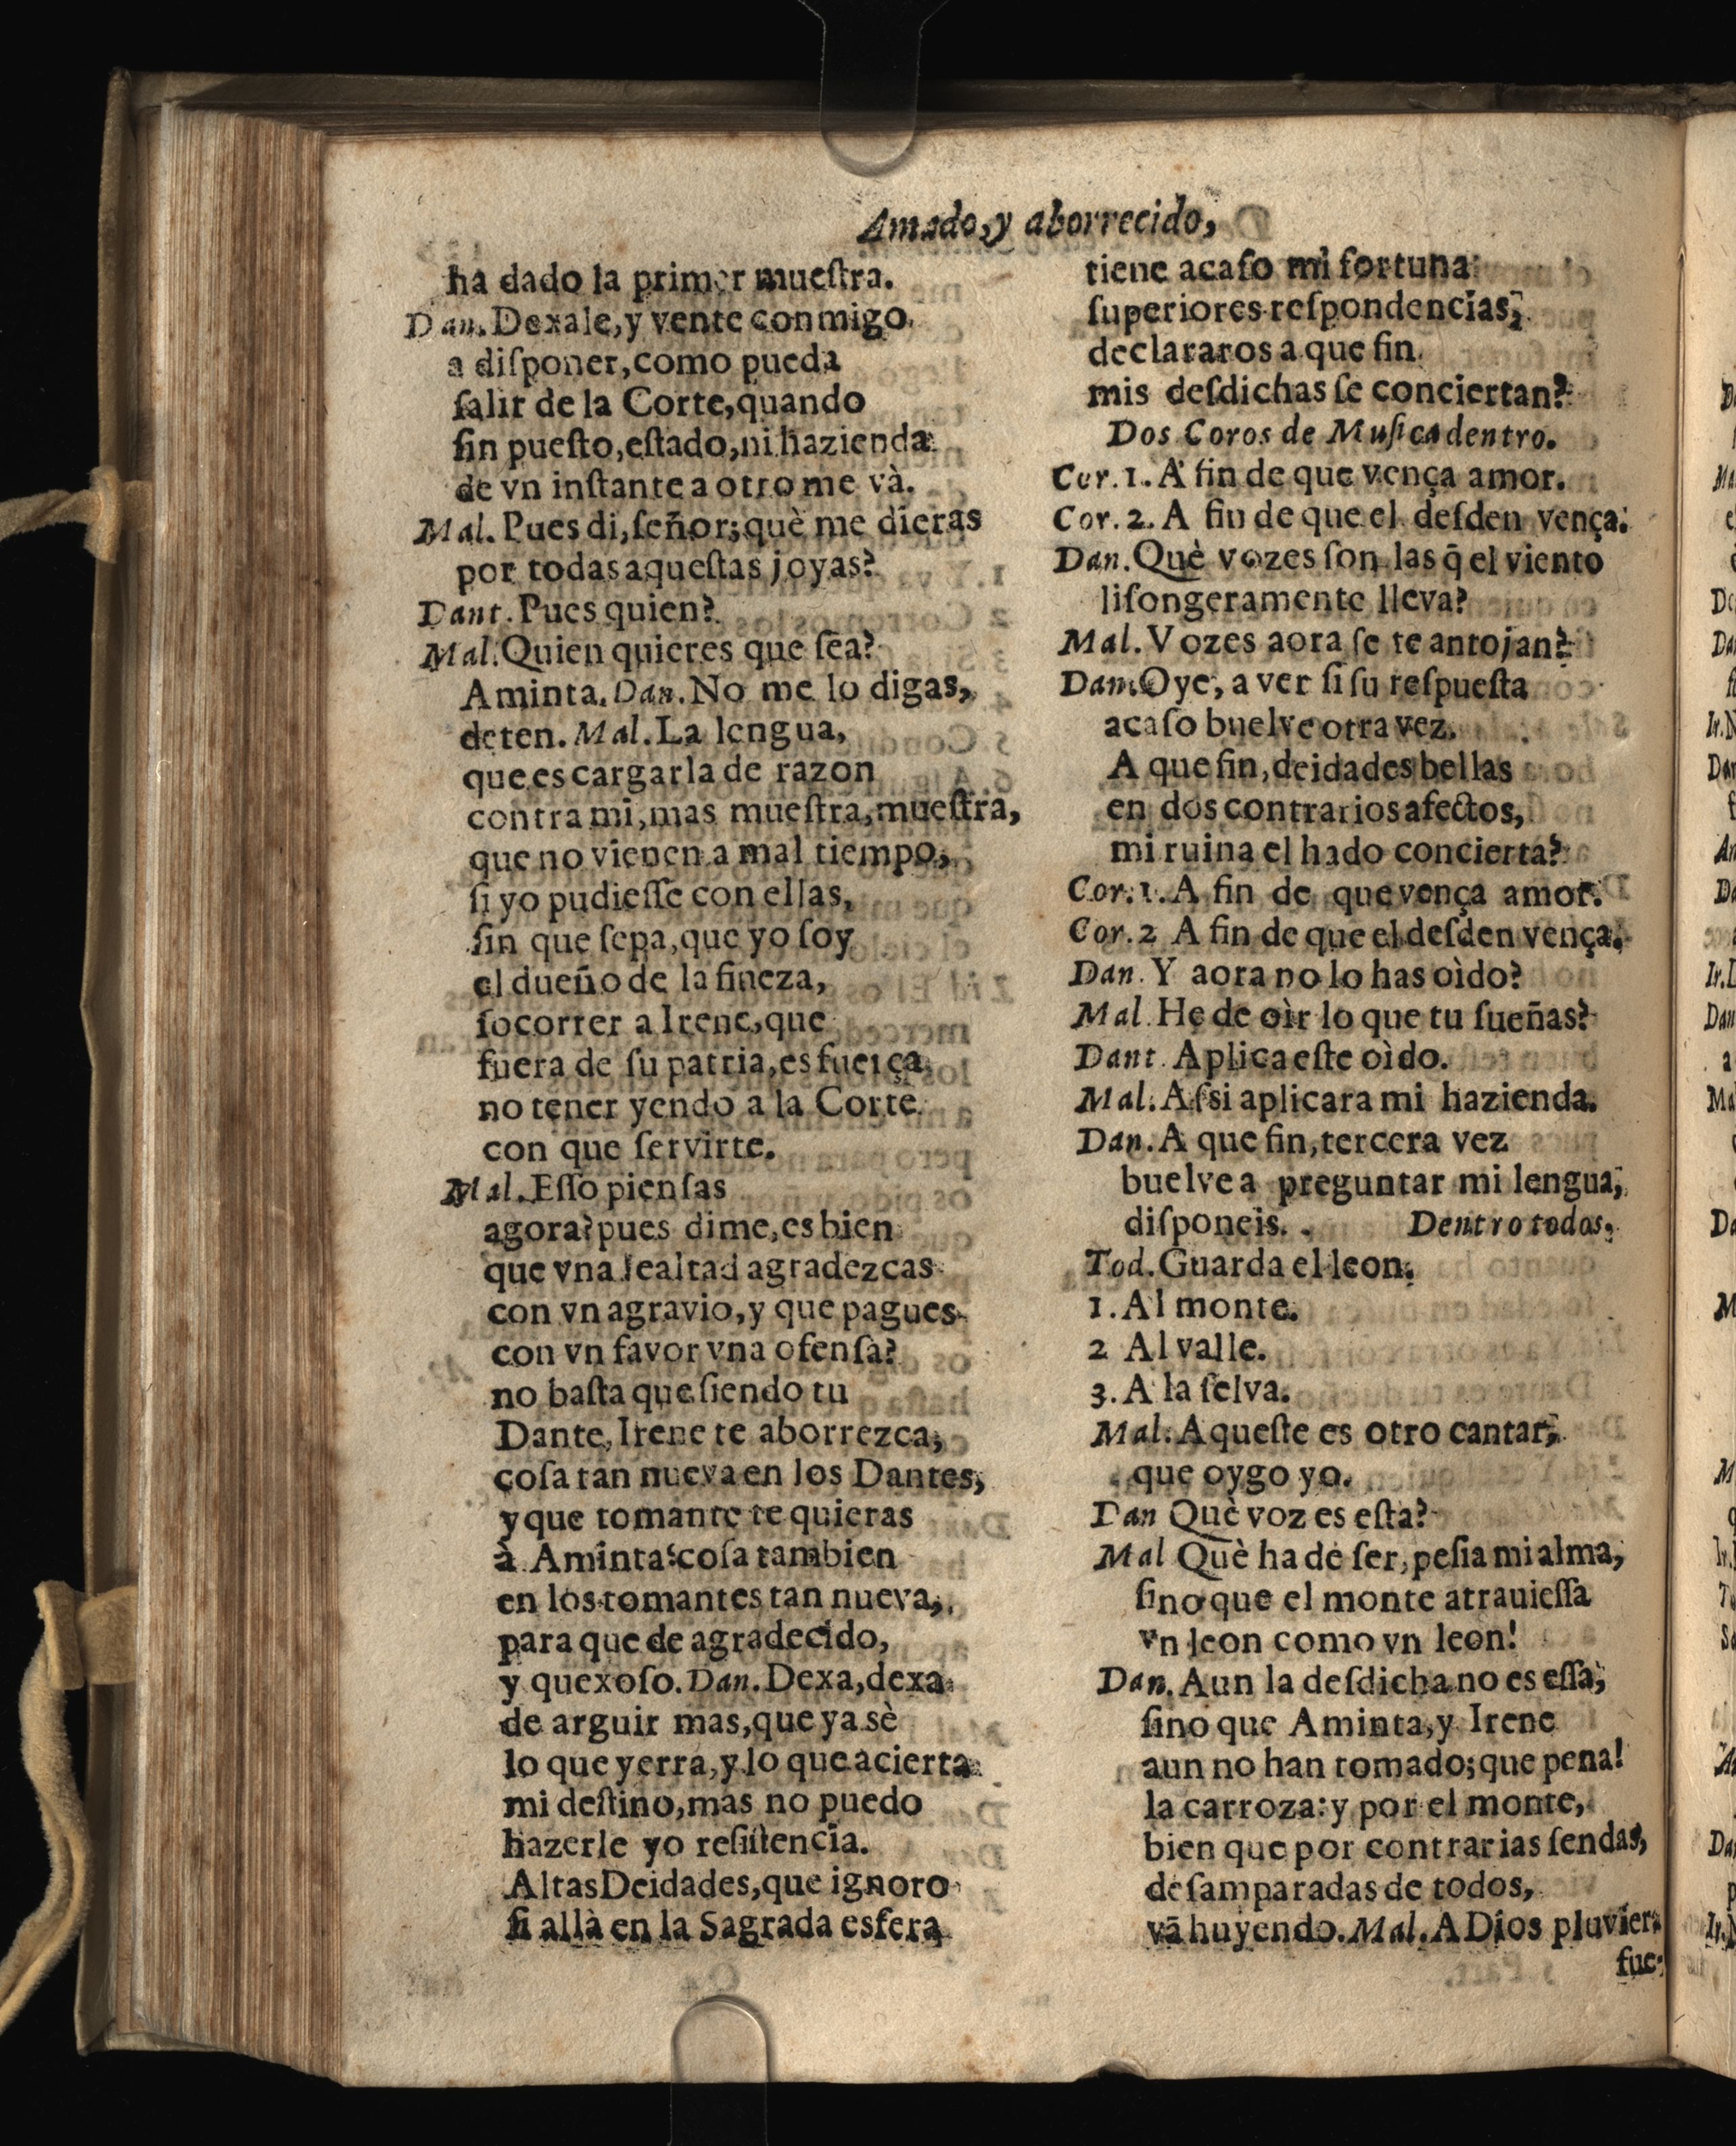 Amado, y aborrecido,
ha dado la primer mueſtra.
Dan. Dexale, y vente conmigo
a diſponer, como pueda
ſalir de la Corte, quando
ſin pueſto, eſtado, ni hazienda
de vn inſtante a otro me và.
Mal. Pues di, ſeñor; què me dieras
por todas aqueſtas joyas?
Dant. Pues quien?
Mal. Quien quieres que ſea?
Aminta. Dan. No me lo digas,
deten. Mal. La lengua,
que es cargarla de razon
contra mi, mas mueſtra, mueſtra,
que no vienen a mal tiempo,
ſi yo pudieſſe con ellas,
ſin que ſepa, que yo ſoy
el dueño de la fineza,
ſocorrer a Irene, que
fuera de ſu patria, es fuerça
no tener yendo a la Corte
con que ſervirte.
Mal. Eſſo pienſas
agora? pues dime, es bien
que vna lealtad agradezcas
con vn agravio, y que pagues
con vn favor vna ofenſa?
no baſta que ſiendo tu
Dante, Irene te aborrezca,
coſa tan nueva en los Dantes,
y que tomante te quieras
à Aminta? coſa tambien
en los tomantes tan nueva,
para que de agradecido,
y quexoſo. Dan. Dexa, dexa
de arguir mas, que ya sè
lo que yerra, y lo que acierta
mi deſtino, mas no puedo
hazerle yo reſiſtencia.
Altas Deidades, que ignoro
ſi allà en la Sagrada esfera
tiene acaſo mi fortuna
ſuperiores reſpondencias,
declararos a que fin
mis deſdichas ſe conciertan?
Dos Coros de Muſica dentro.
Cor. 1. A fin de que vença amor.
Cor. 2. A fin de que el deſden vença.
Dan. Què vozes ſon las q̃ el viento
liſongeramente lleva?
Mal. Vozes aora ſe te antojan?
Dan. Oye, a ver ſi ſu reſpueſta
acaſo buelve otra vez.
A que fin, deidades bellas
en dos contrarios afectos,
mi ruina el hado concierta?
Cor. 1. A fin de que vença amor.
Cor. 2 A fin de que el deſden vença.
Dan. Y aora no lo has oìdo?
Mal. He de oìr lo que tu ſueñas?
Dant. Aplica eſte oìdo.
Mal. Aſsi aplicara mi hazienda.
Dan. A que fin, tercera vez
buelve a preguntar mi lengua,
diſponeis. Dentro todos.
Tod. Guarda el leon.
1. Al monte.
2 Al valle.
3. A la ſelva.
Mal. Aqueſte es otro cantar,
que oygo yo.
Dan Què voz es eſta?
Mal Què ha de ſer, peſia mi alma,
ſino que el monte atrauieſſa
vn leon como vn leon!
Dan. Aun la deſdicha no es eſſa,
ſino que Aminta, y Irene
aun no han tomado; que pena!
la carroza: y por el monte,
bien que por contrarias ſendas,
deſamparadas de todos,
vã huyendo. Mal. A Dios pluviera
fue-